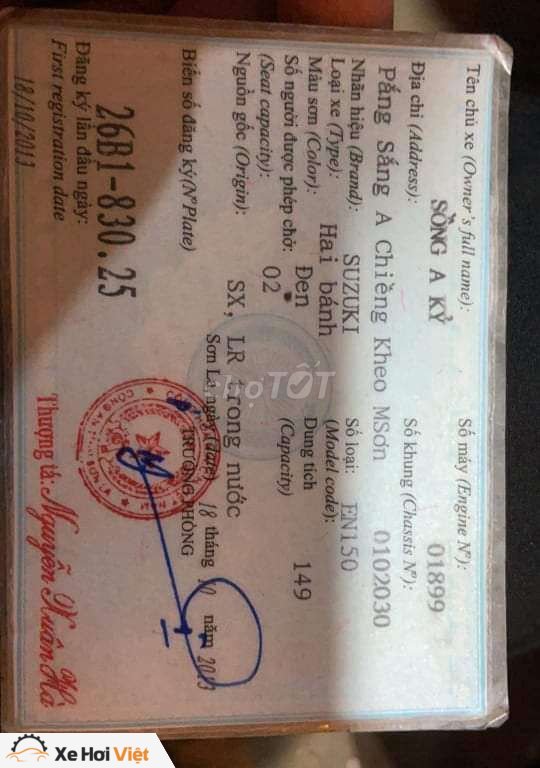 Tên chủ xe (Owner's full name): Số máy (Engine Nº):
SỒNG A KỶ 01899
Địa chỉ (Address): Số khung (Chassis Nº):
Pắng Sẳng A Chiềng Kheo MSơn 0102030
Nhãn hiệu (Brand): SUZUKI Số loại: EN150
Loại xe (Type): Hai bánh (Model code):
Màu sơn (Color): Đen Dung tích 149
Số người được phép chở: 02 (Capacity)
(Seat capacity):
Nguồn gốc (Origin): SX, LR trong nước
Sơn La, ngày (date) 18 tháng 10 năm 2013
Biển số đăng ký(NºPlate) TRƯỞNG PHÒNG
26B1-830.25
Đăng ký lần đầu ngày:
First registration date
18/10/2013
Thượng tá: Nguyễn Xuân Hà
chợTỐT
Xe Hơi Việt